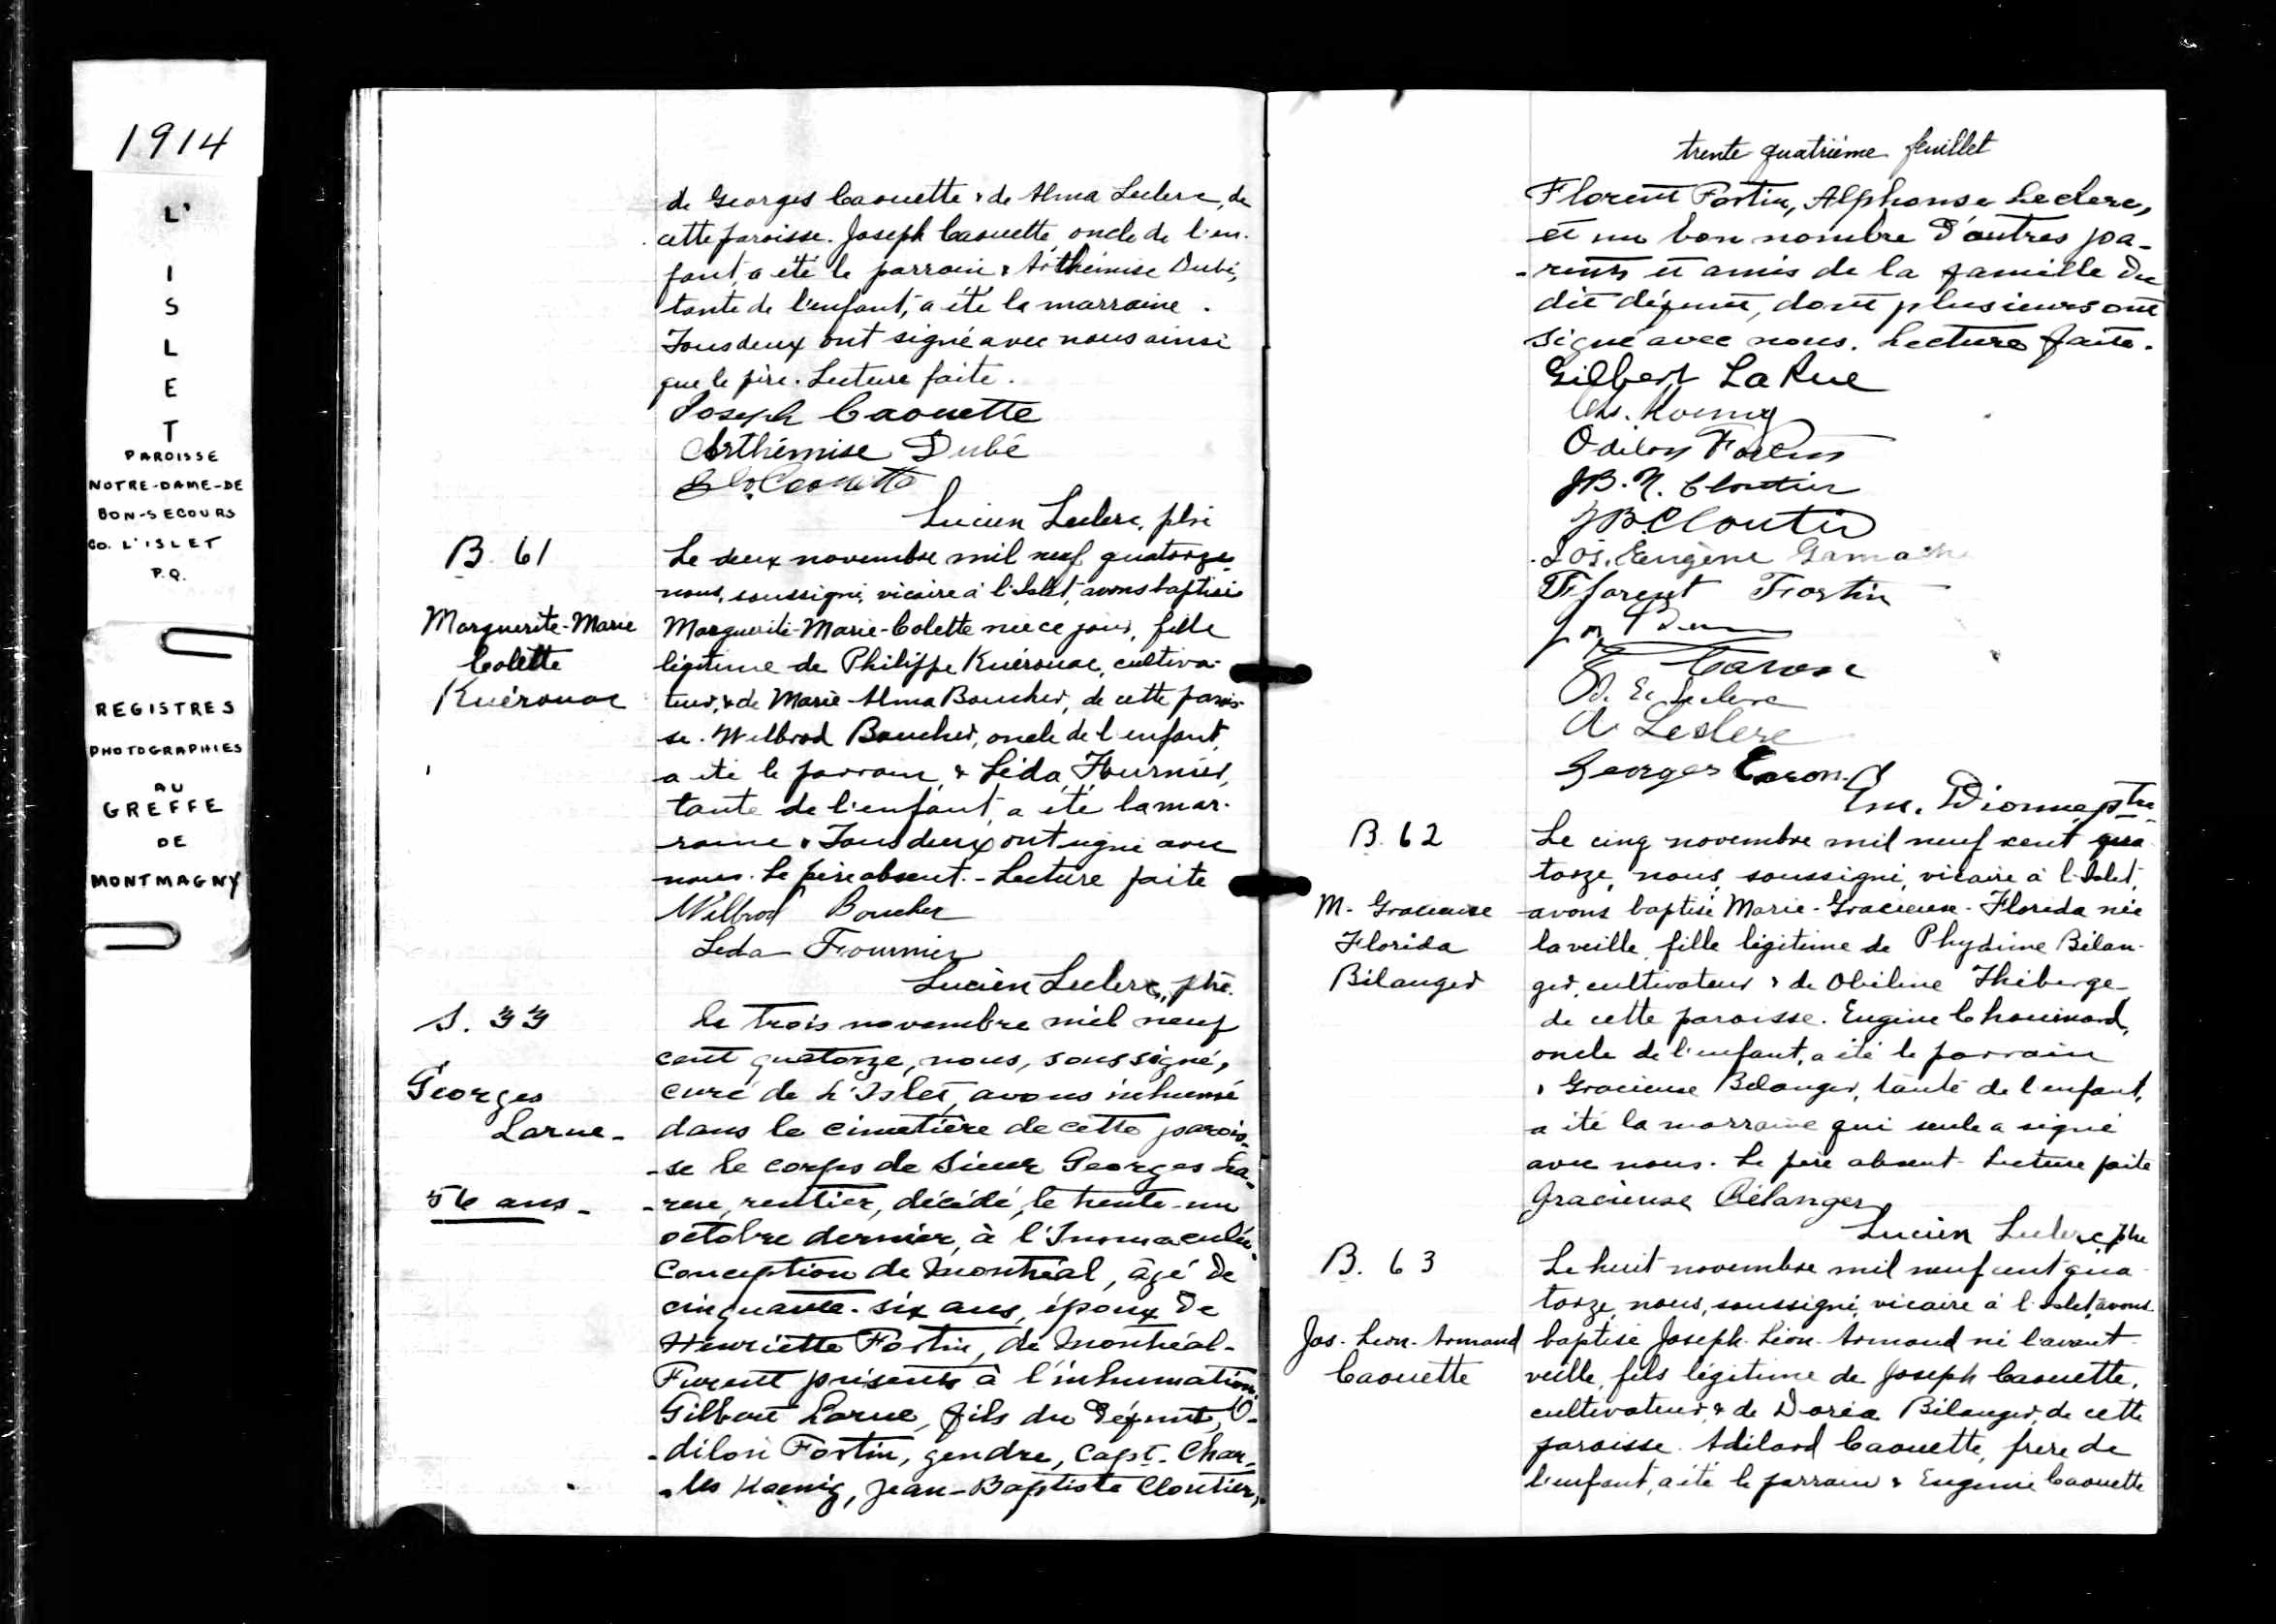 1914
L'
I
S
L
E
T
PAROISSE
NOTRE-DAME-DE
BON-SECOURS
CO. L'ISLET
P.Q.
REGISTRES
PHOTOGRAPHIES
AU
GREFFE
DE
MONTMAGNY
de Georges Caouette & de Alma Leclerc, de
cette paroisse. Joseph Caouette, oncle de l'en-
fant, a été le parrain & Arthémise Dubé,
tante de l'enfant, a été la marraine.
Tous deux ont signé avec nous ainsi
que le père. Lecture faite.
Joseph Caouette
Arthémise Dubé
Caouette
Lucien Leclerc, ptre
B. 61
Marguerite-Marie
Colette
Kuérouac
Le deux novembre mil neuf quatorze,
nous, soussigné, vicaire à l'Islet, avons baptisé
Marguerite-Marie-Colette née ce jour, fille
légitime de Philippe Kuérouac, cultiva-
teur, & de Marie-Alma Boucher, de cette parois-
se. Wilbrod Boucher, oncle de l'enfant,
a été le parrain, & Léda Fournier,
tante de l'enfant, a été la mar-
raine. Tous deux ont signé avec
nous. Le père absent. - Lecture faite
Wilbrod Boucher
Leda Fournier
Lucien Leclerc, ptre.
S. 33
Georges
Larue-
56 ans-
Le trois novembre mil neuf
cent quatorze, nous, soussigné,
curé de L'Islet, avons inhumé
dans le cimetière de cette parois-
-se le corps de Sieur Georges La-
-rue, rentier, décédé, le trente-un
octobre dernier, à l'Immaculée-
Conception de Montréal, âgé de
cinquante-six ans, époux de
Henriette Fortin, de Montréal-
Furent présents à l'inhumation,
Gilbert Larue, fils du défunt, O-
-dilon Fortin, gendre, Capt. Char-
-les Koenig, Jean-Baptiste Cloutier,
trente quatrième feuillet
Florent Fortin, Alphonse Leclerc,
et un bon nombre d'autres pa-
-rents et amis de la famille du
dit défunt, dont plusieurs ont
signé avec nous. Lecture faite.
Gilbert LaRue
Chs. Koenig
Odilon Fortin
J B. N. Cloutier
J B Cloutier
Jos. Eugène Gamache
Florent Fortin
Caron
Leclerc
A Leclerc
Georges Caron
Dionne, ptre
B. 62
M. Gracieuse
Florida
Bélanger
Le cinq novembre mil neuf cent qua-
torze, nous, soussigné, vicaire à l'Islet,
avons baptisé Marie-Gracieuse-Florida née
la veille, fille légitime de Phydime Bélan-
ger, cultivateur & de Obéline Thiberge
de cette paroisse. Eugène Chouinard,
oncle de l'enfant, a été le parrain
& Gracieuse Bélanger, tante de l'enfant,
a été la marraine qui seule a signé
avec nous. Le père absent. Lecture faite
Gracieuse Bélanger
Lucien Leclerc, ptre
B. 63
Jos. Léon-Armand
Caouette
Le huit novembre mil neuf cent qua-
torze, nous, soussigné, vicaire à l'Islet, avons
baptisé Joseph-Léon-Armand né l'avant-
veille, fils légitime de Joseph Caouette,
cultivateur, & de Doréa Bélanger, de cette
paroisse. Adélard Caouette, frère de
l'enfant, a été le parrain & Eugénie Caouette